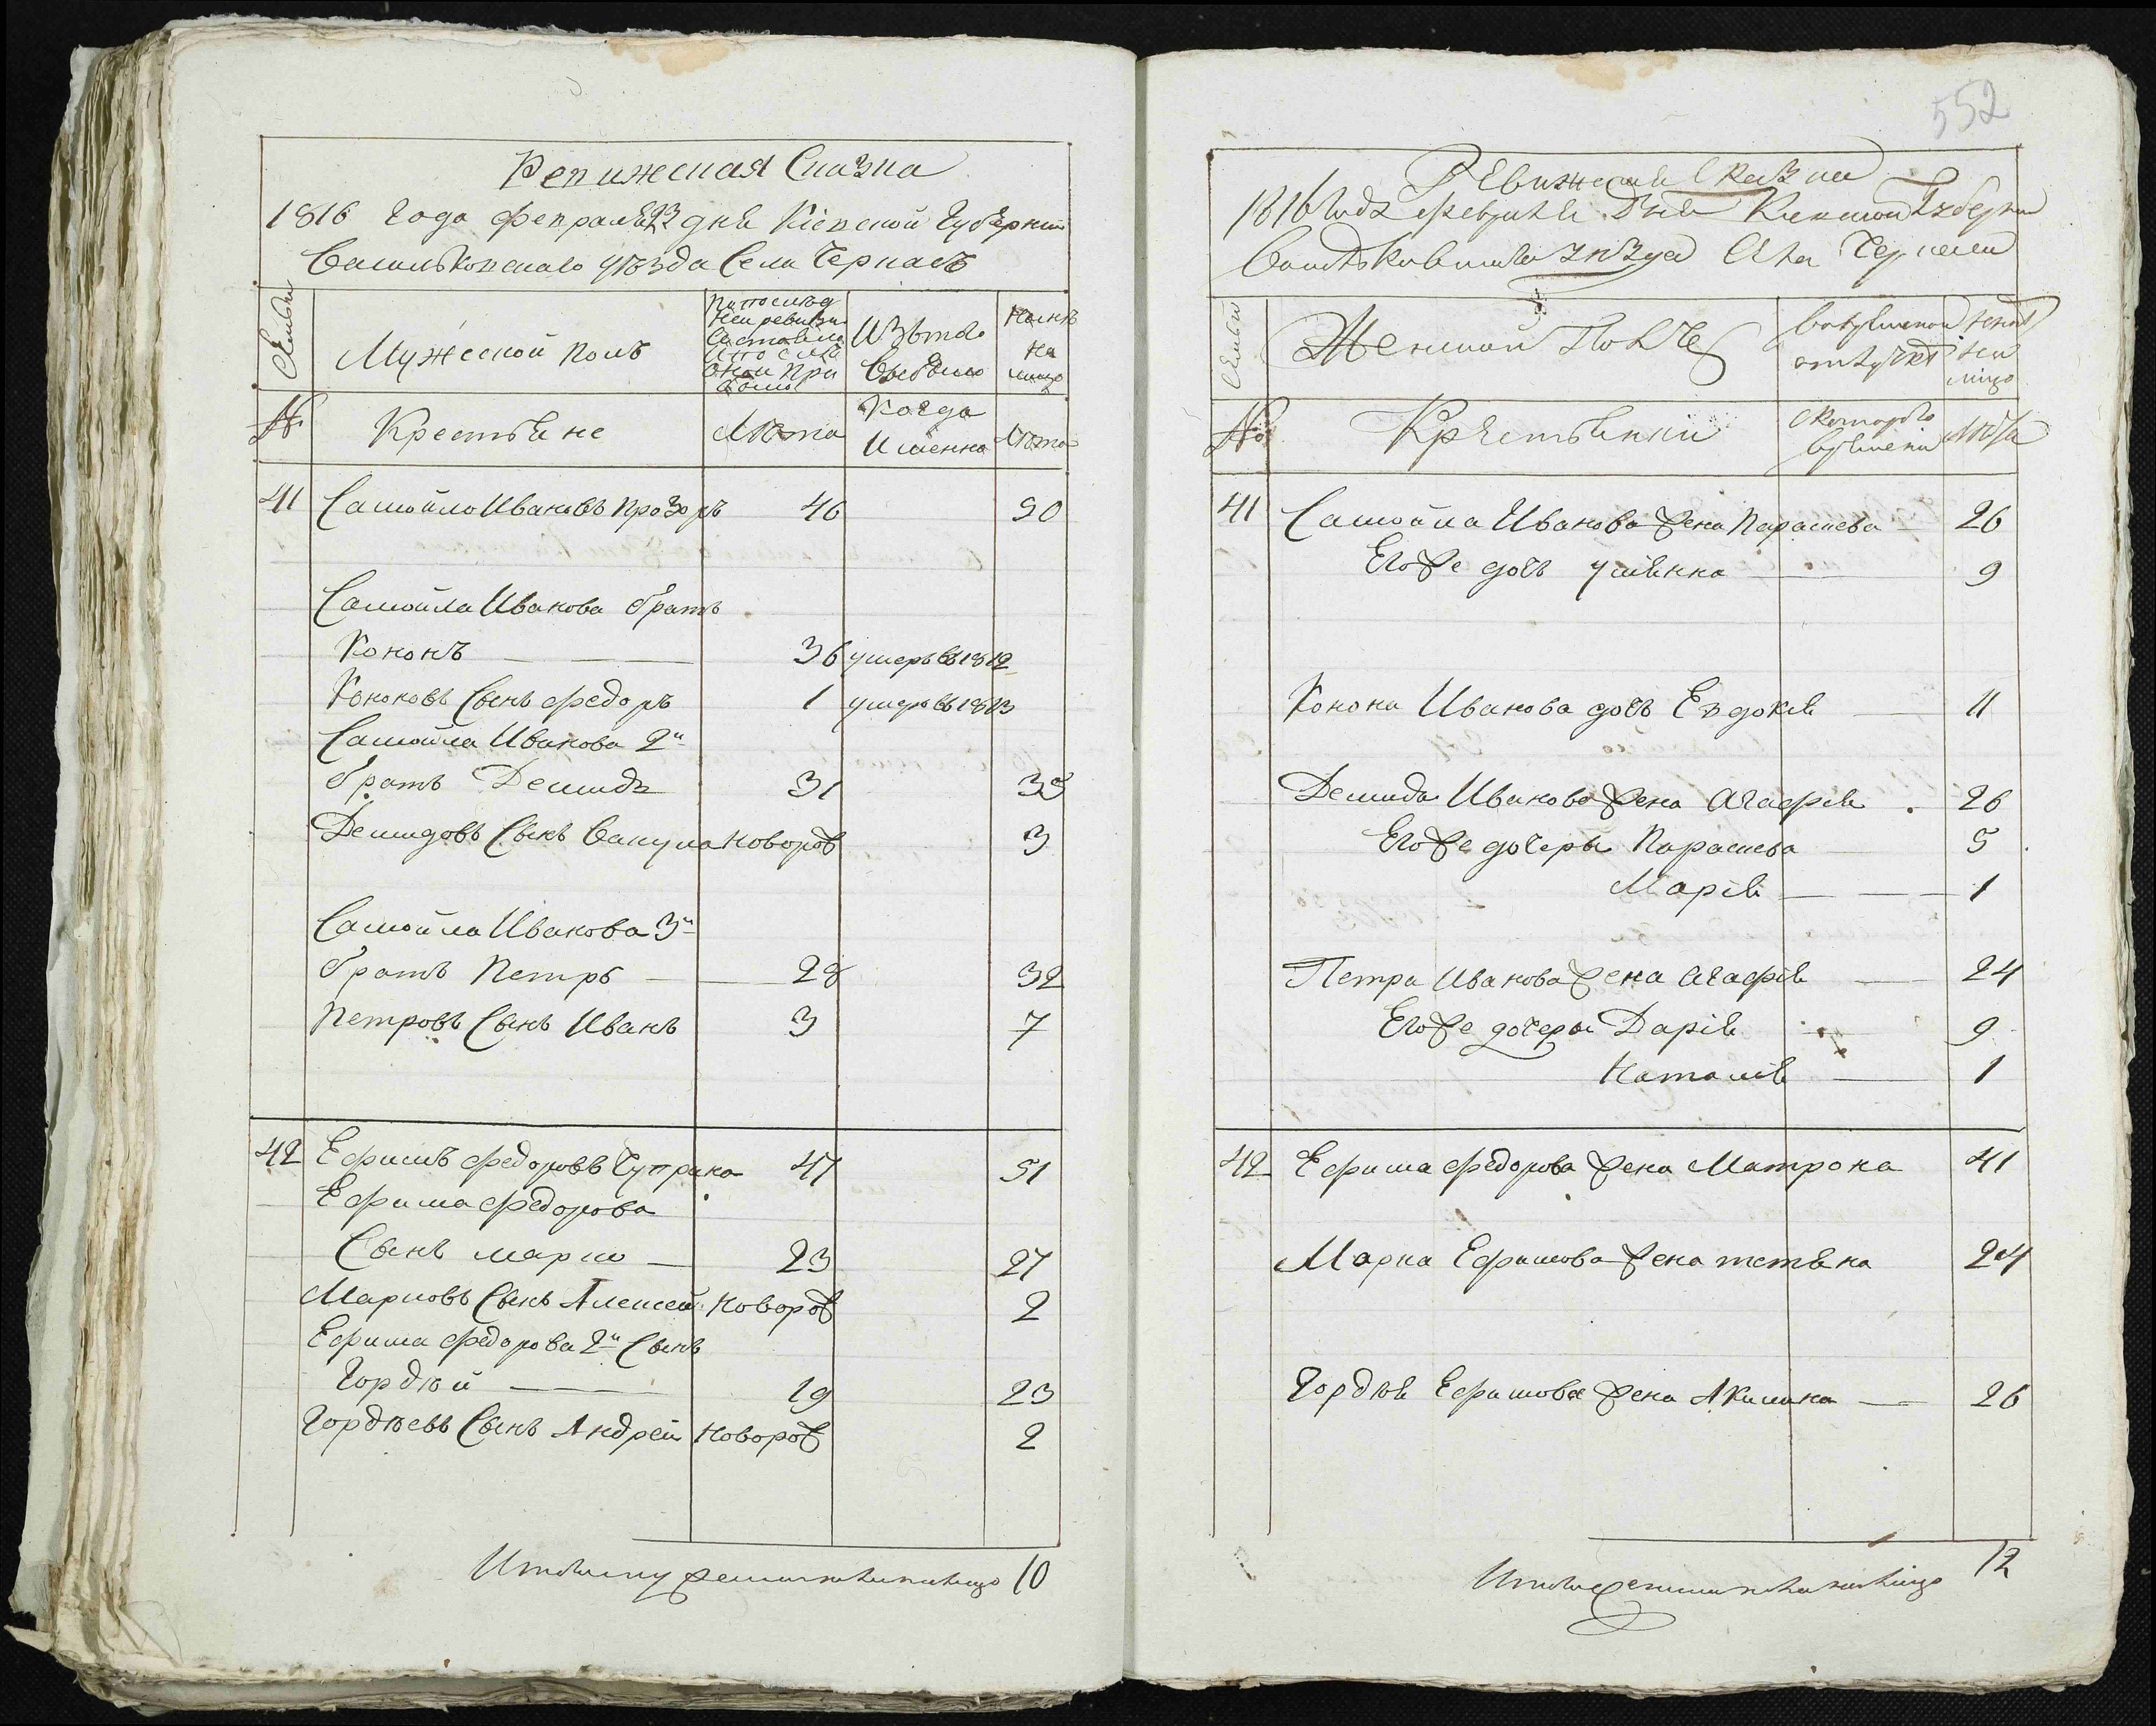 Ревижская Сказка
1816 Года февраля 23 дня Кіевской Губерніи
Васильковскаго уѣзда Села Черкасъ
Семьи
Мужеской полъ
По последней ревизіи состояло и после оной прибыло
Изъ того выбыло
Нынѣ на лицо
№
Крестьяне
Лѣта
Когда именно
Лѣта
41 Самойло Ивановъ Прозоръ 46 50
Самойла Иванова братъ
Кононъ 36 умеръ въ 1812
Кононовъ Сынъ Федоръ 1 умеръ въ 1813
Самойла Иванова 2й
братъ Демидъ 31 35
Демидовъ Сынъ Вакула новорож 3
Самойла Иванова 3й
братъ Петръ 28 32
Петровъ Сынъ Иванъ 3 7
42 Ефимъ Федоровъ Чуприна 47 51
Ефима Федорова
Сынъ Марко 23 27
Марковъ Сынъ Алексей новорож 2
Ефима Федорова 2й Сынъ
Гордѣй 19 23
Гордѣевъ Сынъ Андрей новорож 2
Итого мужеска пола на лицо 10
552
Ревижская Сказка
1816 года февраля дня Киевской Губернии
Васильковскаго уѣзда Села Черкасъ
Семьи
Женской Полъ
Во временной отлучкѣ
Нынѣ на лицо
№
Крестьянки
С котораго времени
Лѣта
41 Самойла Иванова жена Параскева 26
Его же дочь Ульянна 9
Конона Иванова дочь Евдокія 11
Демида Иванова жена Агафія 26
Его же дочеры Параскева 5
Марія 1
Петра Иванова жена Агафія 24
Его же дочеры Дарія 9
Наталія 1
42 Ефима Федорова жена Матрона 41
Марка Ефимова жена тетяна 24
Гордѣя Ефимова жена Акилина 26
Итого женска пола на лицо 12